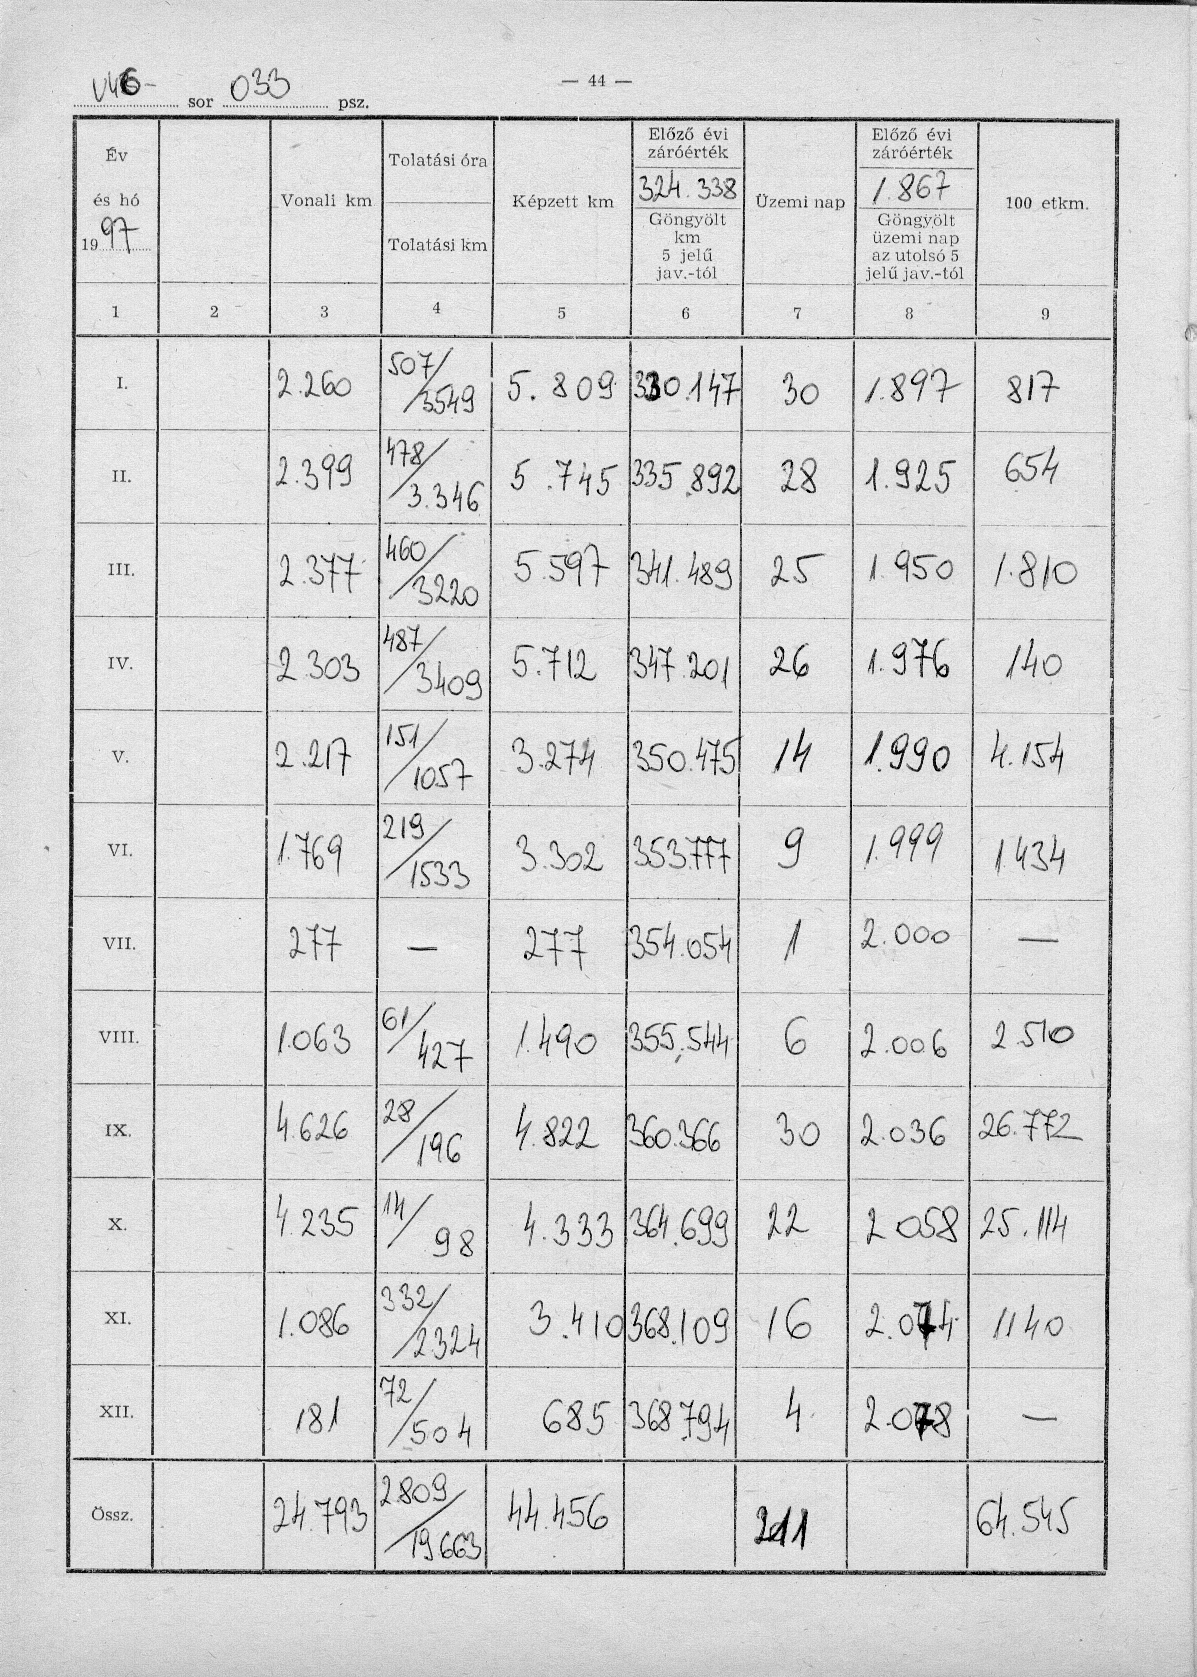 — 44 —
V46- sor 033 psz.
Év és hó 1997 | Vonali km | Tolatási óra Tolatási km | Képzett km | Előző évi záróérték 324.338 Göngyölt km 5 jelű jav.-tól | Üzemi nap | Előző évi záróérték 1.867 Göngyölt üzemi nap az utolsó 5 jelű jav.-tól | 100 etkm.
1 2 3 4 5 6 7 8 9
I. 2.260 507/3549 5.809 330.147 30 1.897 817
II. 2.399 478/3.346 5.745 335.892 28 1.925 654
III. 2.377 460/3220 5.597 341.489 25 1.950 1.810
IV. 2.303 487/3409 5.712 347.201 26 1.976 140
V. 2.217 151/1057 3.274 350.475 14 1.990 4.154
VI. 1.769 219/1533 3.302 353777 9 1.999 1.434
VII. 277 — 277 354.054 1 2.000 —
VIII. 1.063 61/427 1.490 355.544 6 2.006 2.510
IX. 4.626 28/196 4.822 360.366 30 2.036 26.772
X. 4.235 14/98 4.333 364.699 22 2.058 25.114
XI. 1.086 332/2324 3.410 368.109 16 2.074 1140
XII. 181 72/504 685 368.794 4 2.078 —
Össz. 24.793 2809/19663 44.456 211 64.545